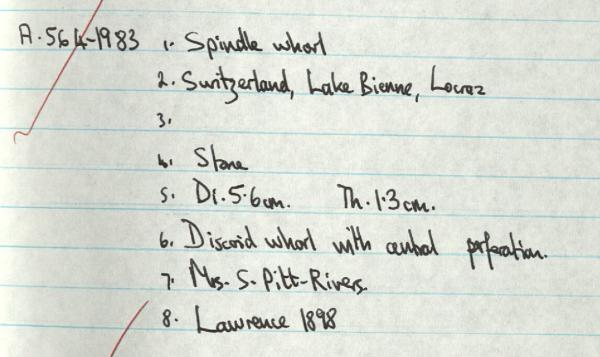 A.564-1983 1. Spindle whorl
2. Switzerland, Lake Bienne, Locraz
3.
4. Stone
5. Di. 5.6cm. Th. 1.3cm.
6. Discoid whorl with central perforation.
7. Mrs. S. Pitt-Rivers.
8. Lawrence 1898